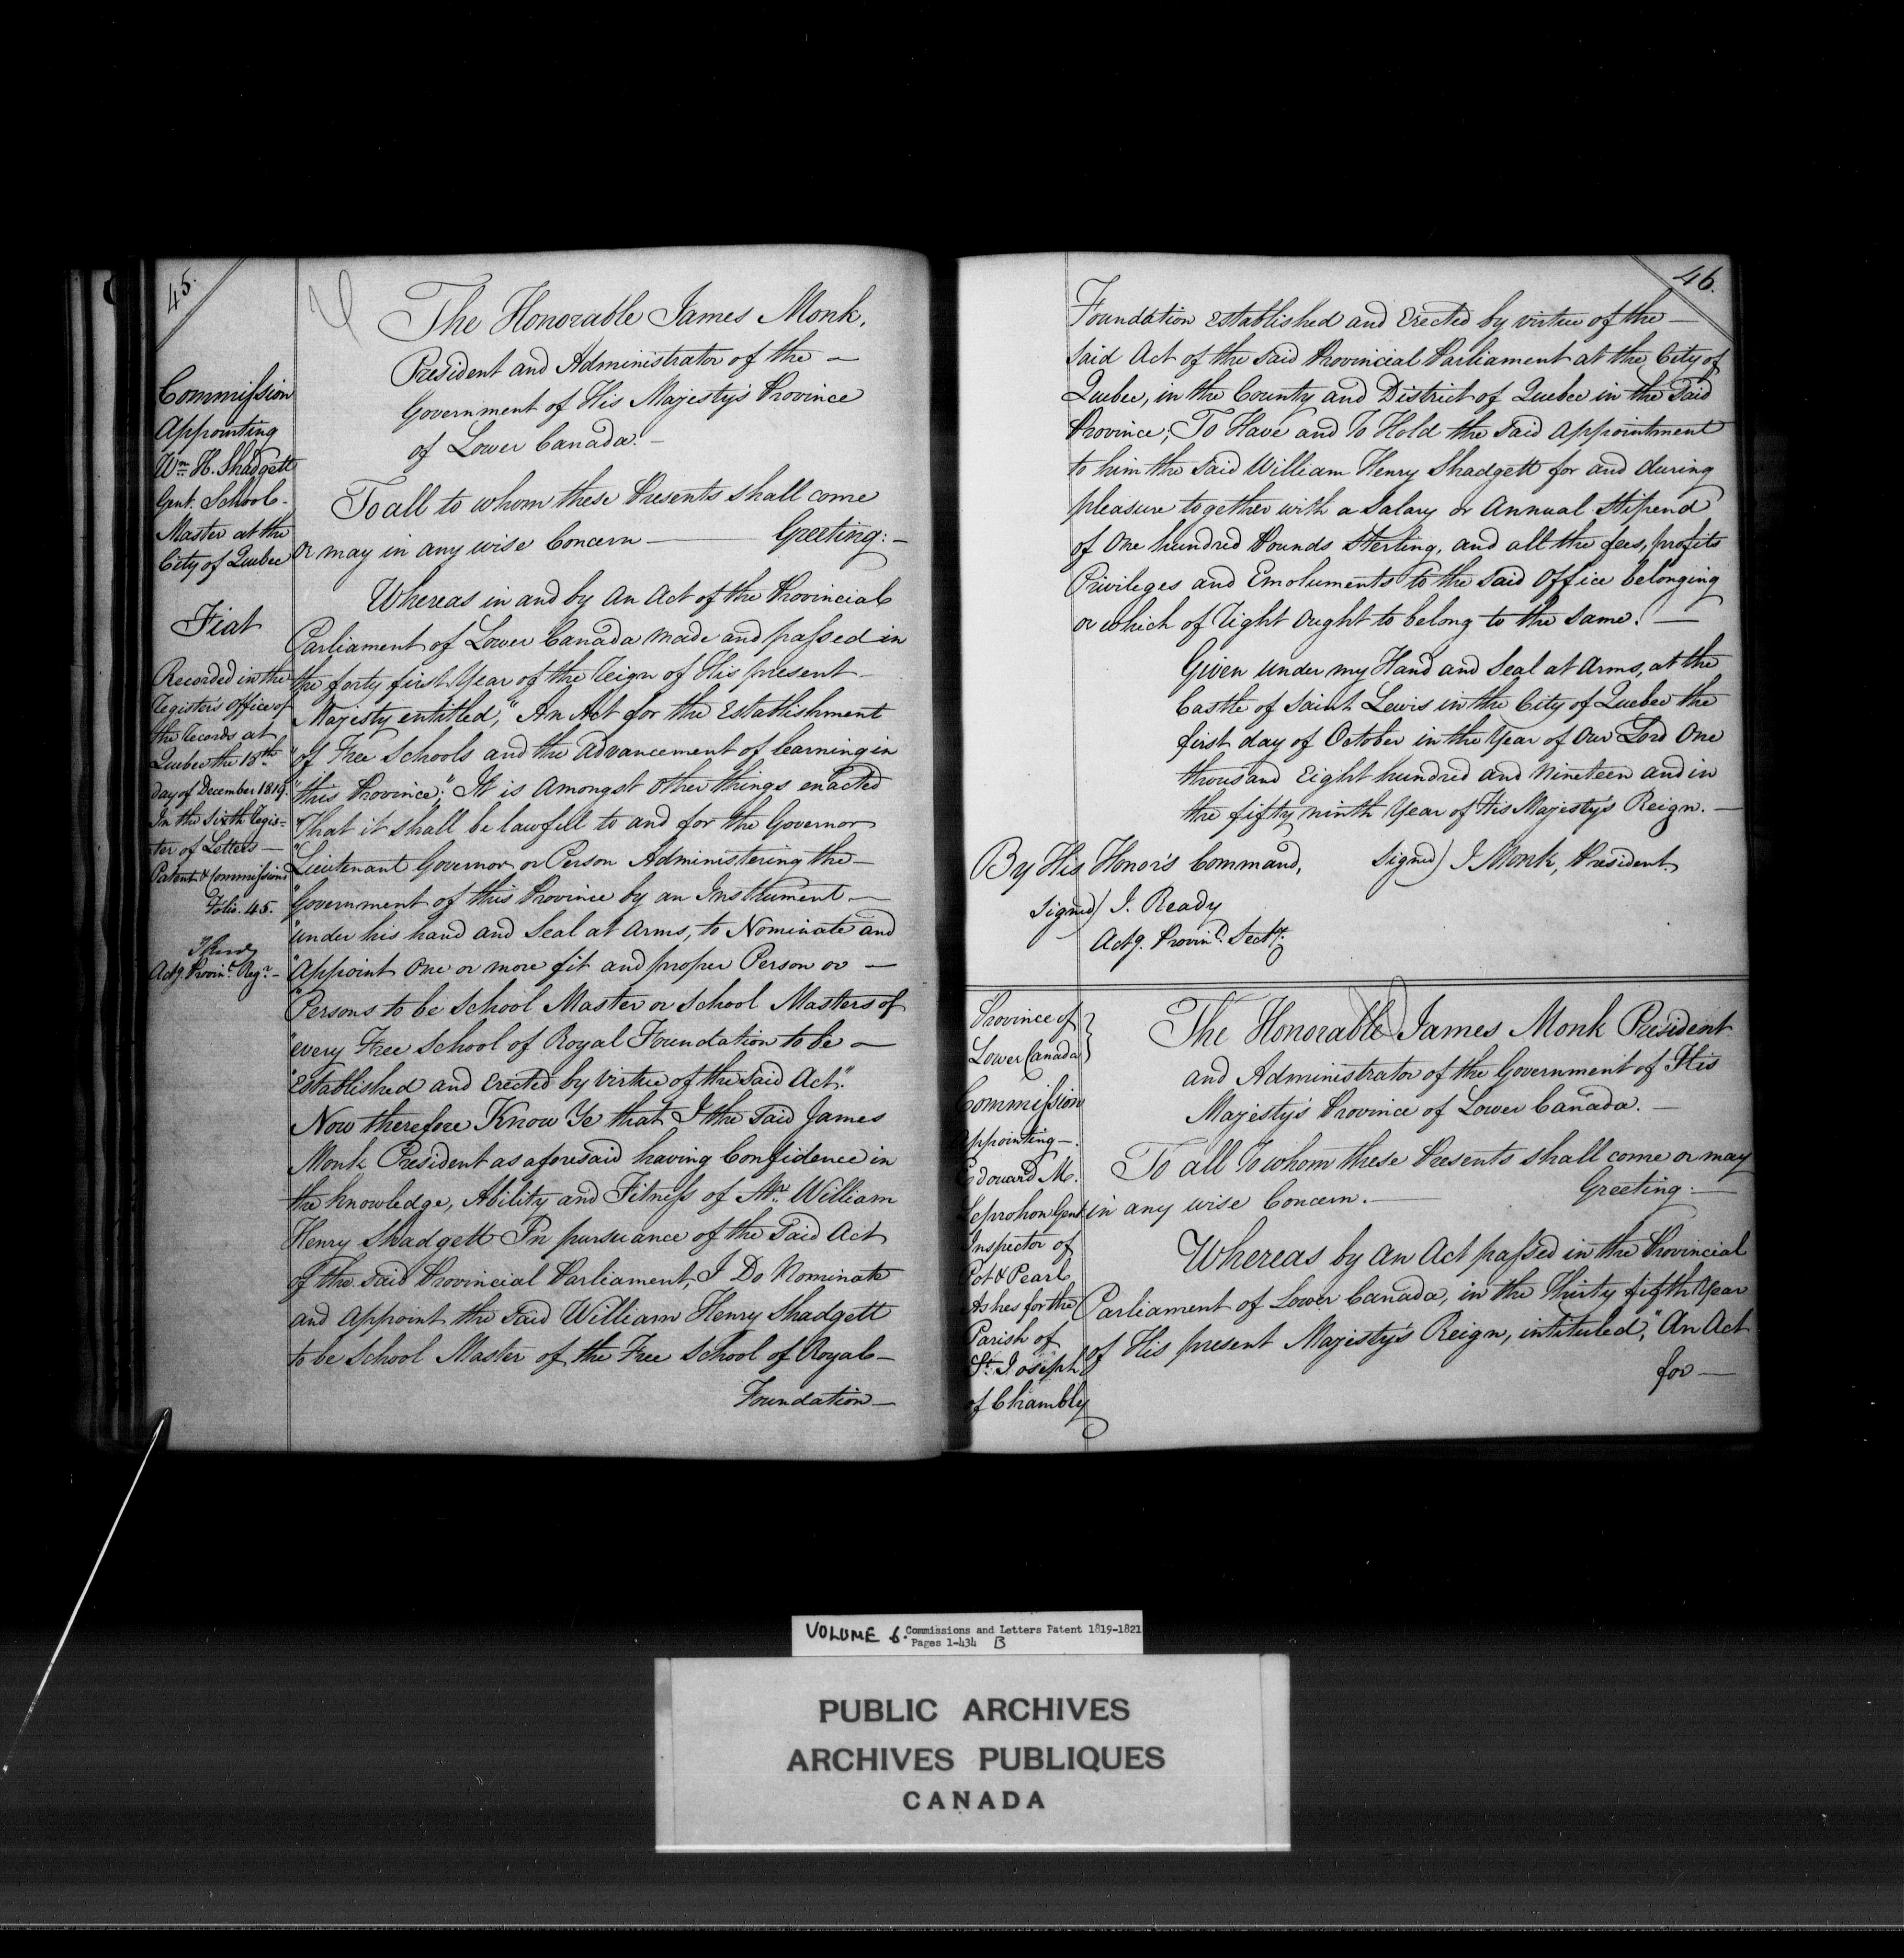 45.
Commission
Appointing
Wm H. Shadgett
Gent. School
Master at the
City of Quebec
Fiat
Recorded in the
Registers Office of
the Records at
Quebec the 18th
day of December 1819.
In the Sixth Regis=
=ter of Letters —
Patent & Commissions
Folio. 45.
J Ready
Actg Provinl. Regr. —
The Honorable James Monk,
President and Administrator of the —
Government of His Majesty's Province
of Lower Canada. —
To all to whom these Presents shall come
or may in any wise Concern — Greeting: —
Whereas in and by An Act of the Provincial
Parliament of Lower Canada made and passed in
the forty first Year of the Reign of His present —
Majesty entitled, "An Act for the Establishment
"of Free Schools and the advancement of learning in
"this Province;" It is amongst other things enacted
"That it shall be lawfull to and for the Governor
"Lieutenant Governor or Person Administering the —
"Government of this Province by an Instrument —
"under his hand and Seal at Arms, to Nominate and
"Appoint One or more fit and proper Person or —
"Persons to be School Master or School Masters of
"every Free School of Royal Foundation to be —
"Established and Erected by virtue of the said Act".
Now therefore Know Ye that I the said James
Monk President as aforesaid having Confidence in
the knowledge, Ability and Fitness of Mr. William
Henry Shadgett In pursuance of the said Act
of the said Provincial Parliament, I Do Nominate
and Appoint the said William Henry Shadgett
to be School Master of the Free School of Royal —
Foundation —
46.
Foundation established and Erected by virtue of the —
said Act of the said Provincial Parliament at the City of
Quebec, in the County and District of Quebec in the Said
Province; To Have and To Hold the said Appointment
to him the said William Henry Shadgett for and during
pleasure together with a Salary or Annual Stipend
of One hundred Pounds Sterling, and all the fees, profits
Privileges and Emoluments to the said Office belonging
or which of right ought to belong to the same. —
Given under my Hand and Seal at Arms, at the
Castle of Saint Lewis in the City of Quebec the
first day of October in the Year of Our Lord One
thousand Eight hundred and Nineteen and in
the fifty ninth Year of His Majesty's Reign. —
By His Honor's Command, Signed) J. Monk, President.
Signed) J. Ready
Actg. Provinl. Secty.
Province of
Lower Canada
Commission
Appointing —
Edouard M.
Leprohon Gent
Inspector of
Pot & Pearl
Ashes for the
Parish of
St. Joseph
of Chambly
The Honorable James Monk President
and Administrator of the Government of His
Majesty's Province of Lower Canada. —
To all to whom these Presents shall come or may
in any wise Concern. — Greeting: —
Whereas by An Act passed in the Provincial
Parliament of Lower Canada, in the Thirty fifth Year
of His present Majesty's Reign, intituled, "An Act
for —
VOLUME 6. Commissions and Letters Patent 1819-1821
Pages 1-434 B
PUBLIC ARCHIVES
ARCHIVES PUBLIQUES
CANADA